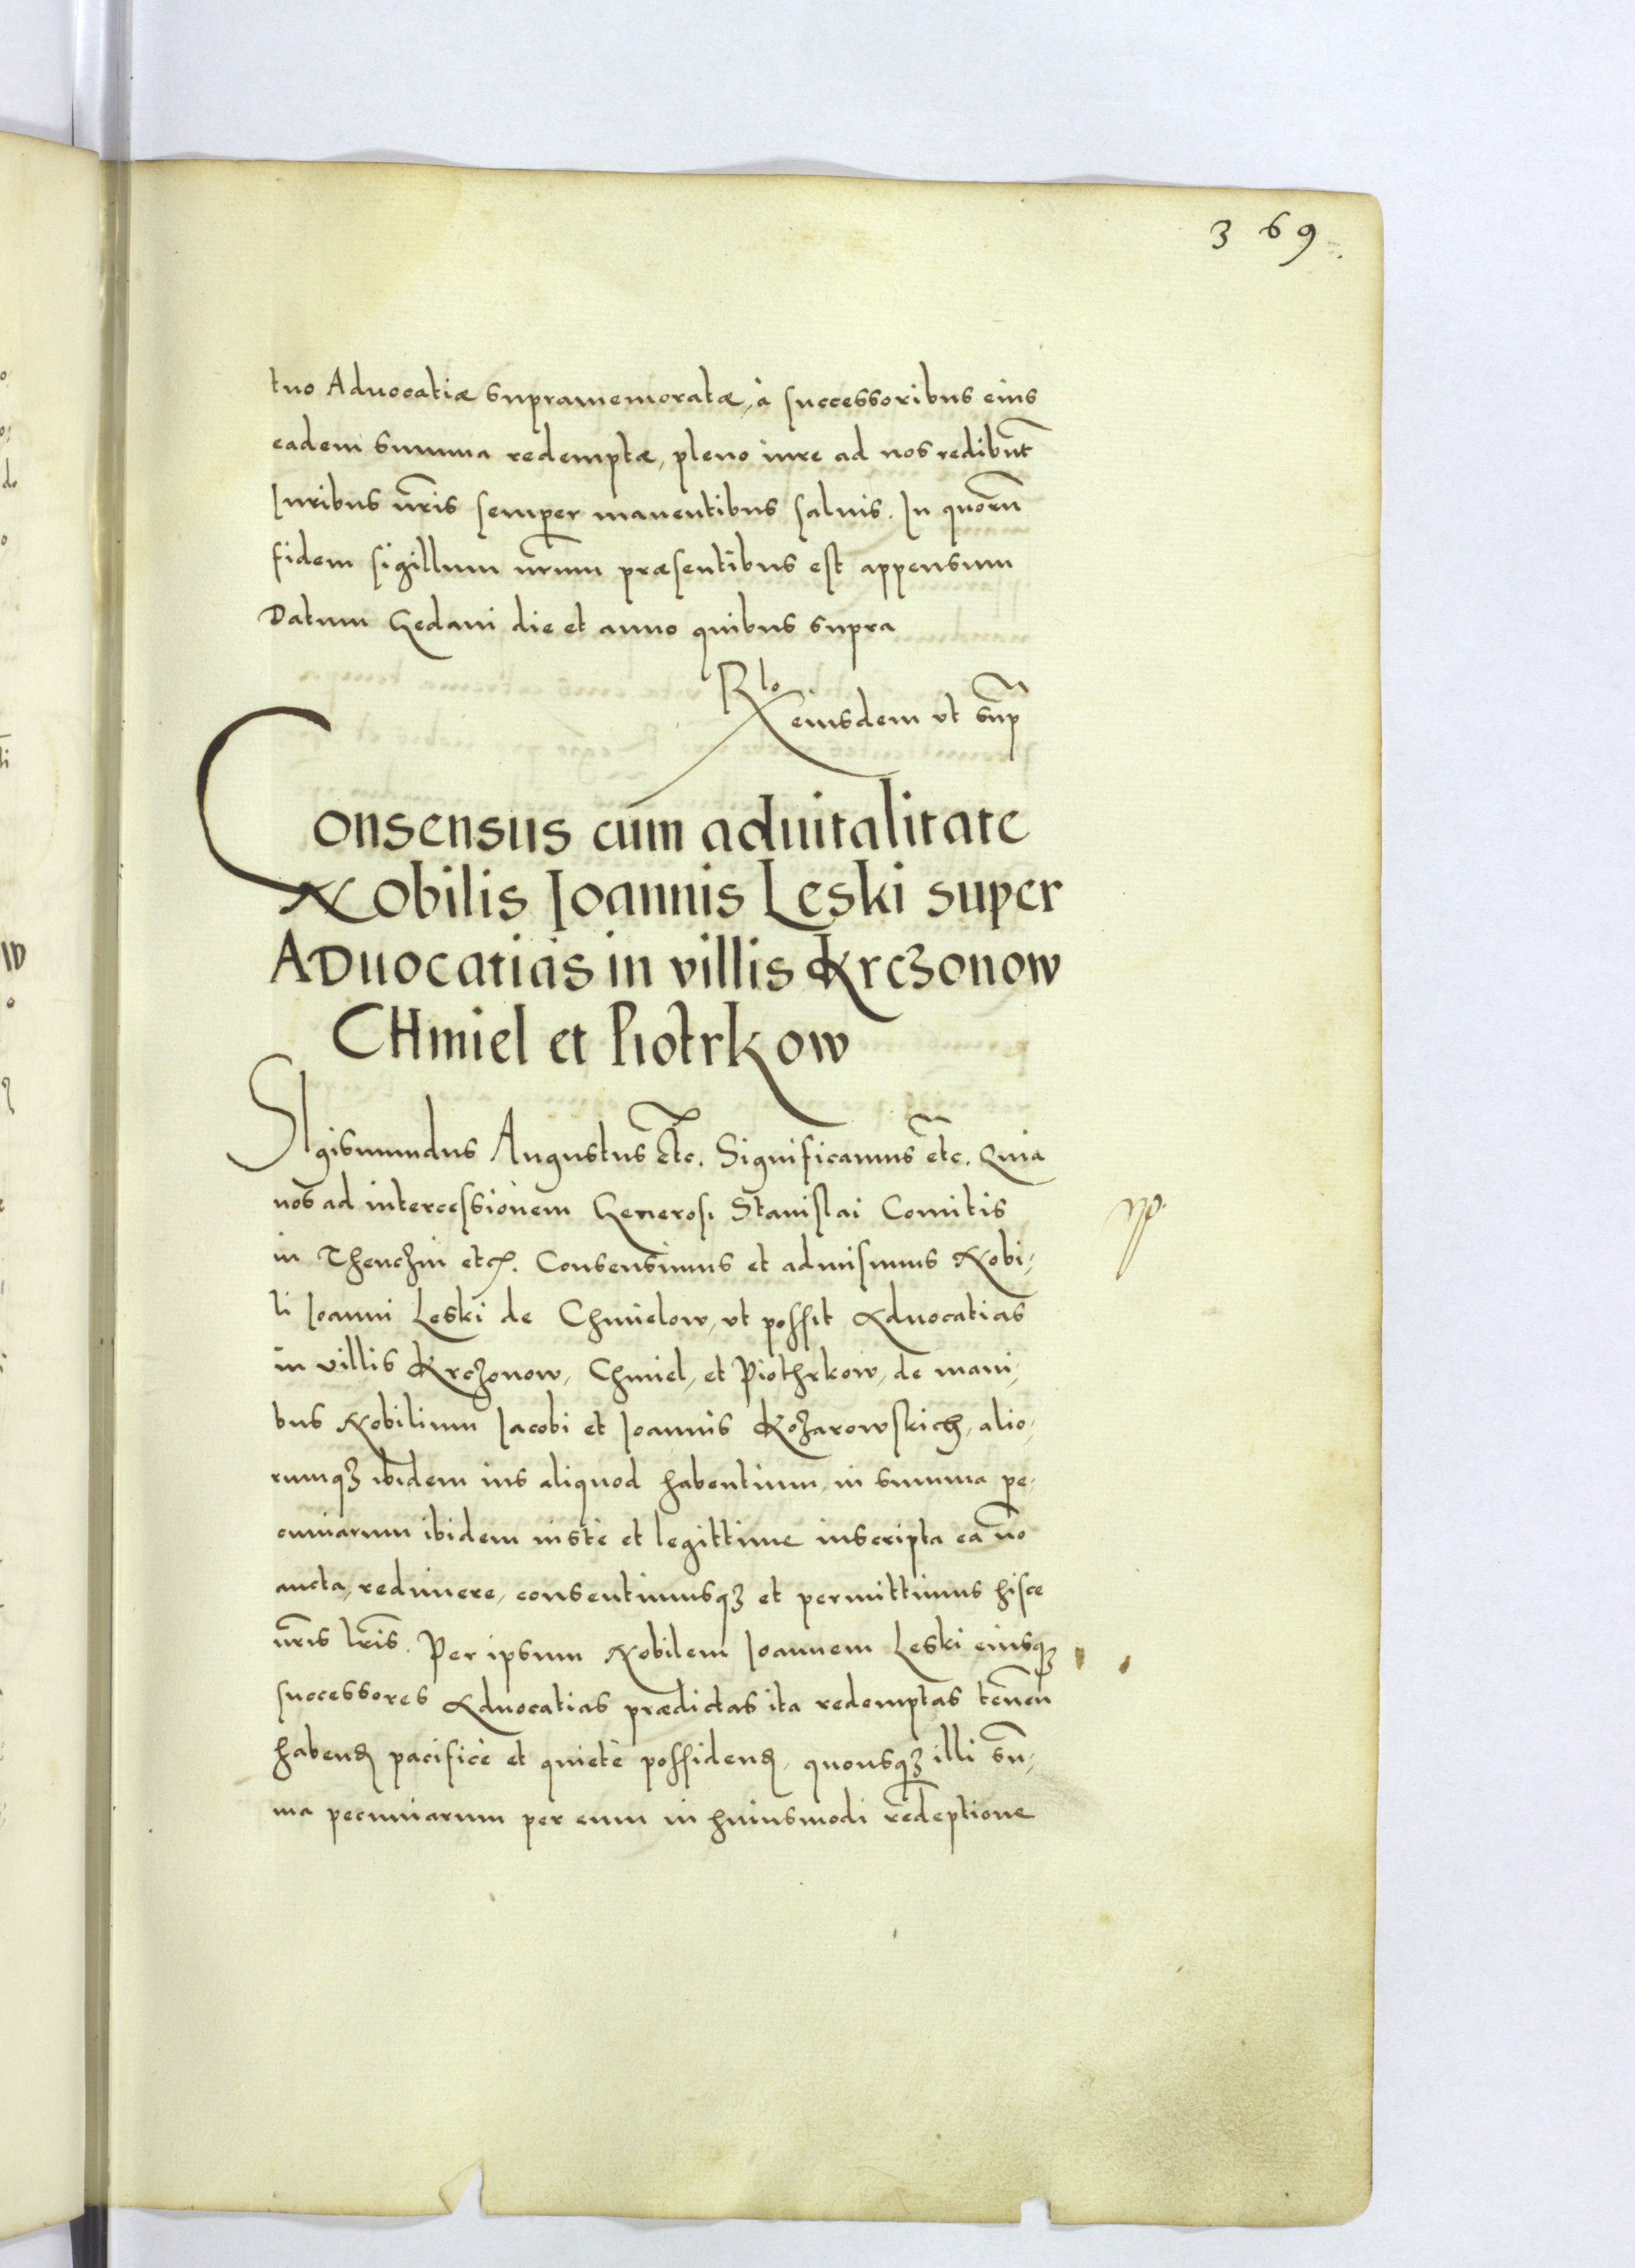 369.
tuo Aduocatiæ supramemoratæ, à successoribus eius
eadem summa redemptæ, pleno iure ad nos redibūt
Iuribus nr̄is semper manentibus saluis. In quorū
fidem sigillum nr̄um præsentibus est appensum
Datum Gedani die et anno quibus supra
Rlo eiusdem vt sup̄
Consensus cum aduitalitate
Nobilis Ioannis Leski super
Aduocatias in villis Krczonow
CHmiel et Piotrkow
SIgismundus Augustus etc. Significamus etc. Quia
nos ad intercessionem Generosi Stanislai Comitis
in Thenczin etc. Consensimus et admisimus Nobi,
li Ioanni Leski de Chmielow, vt possit Aduocatias
in villis Krczonow, Chmiel, et Piothrkow, de mani,
bus Nobilium Iacobi et Ioannis Kozarowskich, alio,
rumqȝ ibidem ius aliquod habentium, in summa pe,
cuniarum ibidem iustè et legittime inscripta ea nō
aucta, redimere, consentimusqȝ et permittimus hisce
nr̄is lr̄is. Per ipsum Nobilem Ioannem Leski eiusqȝ
successores Aduocatias prædictas ita redemptas tenen̄
habenđ pacificè et quietè possidenđ, quousqȝ illi sū,
ma pecuniarum per eum in huiusmodi redēptione